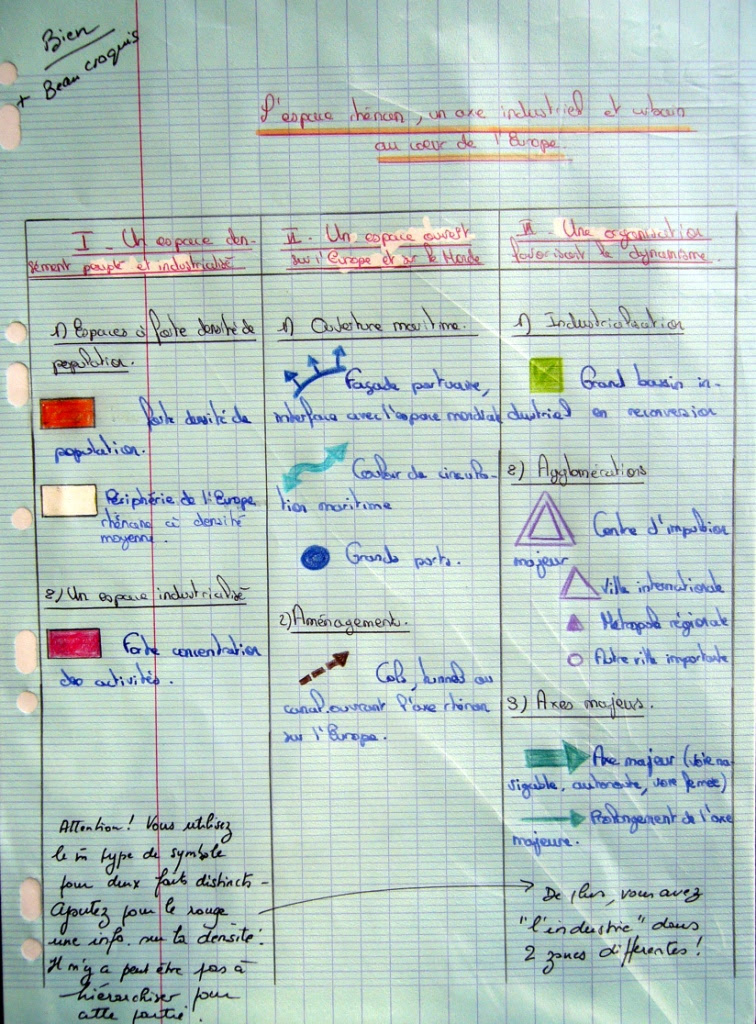 Bien
+ Beau croquis
L'espace rhénan, un axe industriel et urbain
au coeur de l'Europe.
I - Un espace den-
sément peuplé et industrialisé
1) Espaces à forte densité de
population.
forte densité de
population.
Périphérie de l'Europe
rhénane à densité
moyenne.
2) Un espace industrialisé
Forte concentration
des activités.
Attention! Vous utilisez
le m type de symbole
pour deux faits distincts -
Ajoutez pour le rouge
une info. sur la densité.
Il n'y a peut être pas à
hiérarchiser pour
cette partie.
II - Un espace ouvert
sur l'Europe et sur le Monde
1) Ouverture maritime.
Façade portuaire,
interface avec l'espace mondial
Couloir de circula-
tion maritime
Grands ports.
2) Aménagement.
Cols, tunnel ou
canal ouvrant l'axe rhénan
sur l'Europe.
III - Une organisation
favorisant le dynamisme.
1) Industrialisation
Grand bassin in-
dustriel en reconversion
2) Agglomérations
Centre d'impulsion
majeur
Ville internationale
Métropole régionale
Autre ville importante
3) Axes majeurs.
Axe majeur (voie na-
vigable, autoroute, voie ferrée)
Prolongement de l'axe
majeure.
De plus, vous avez
"l'industrie" dans
2 zones différentes!